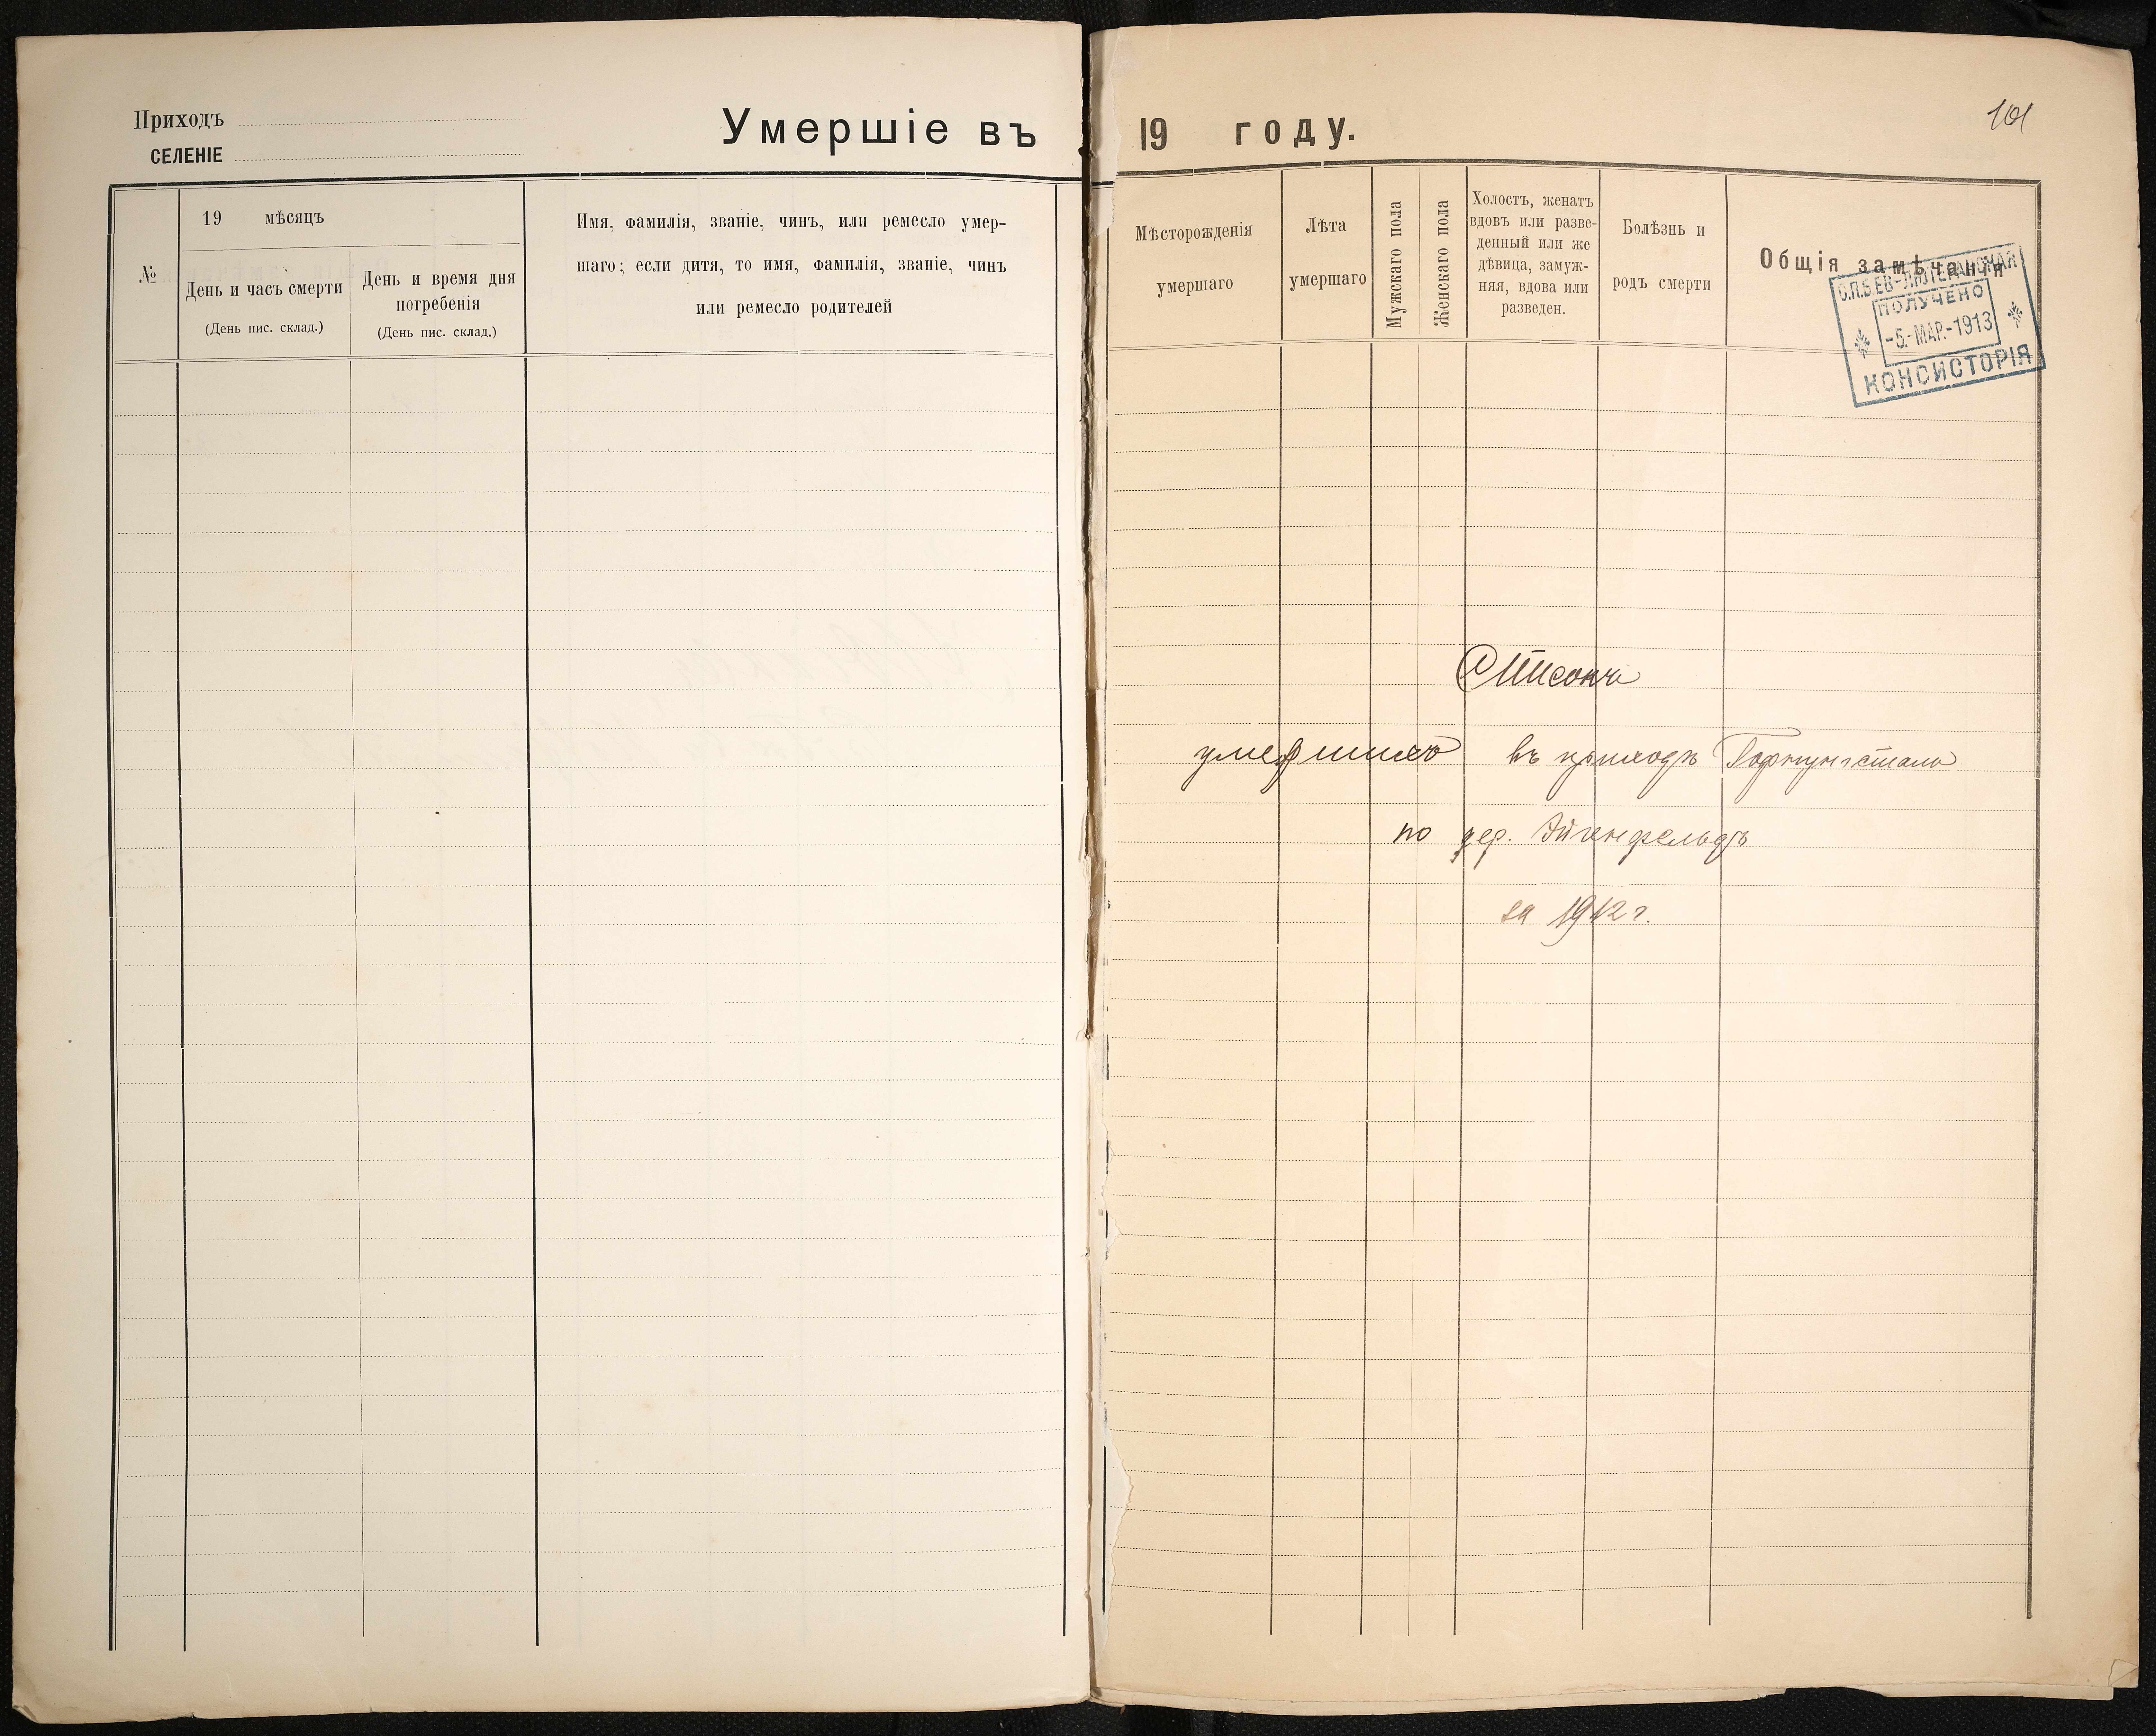 Приходъ
СЕЛЕНІЕ
Умершіе въ 19 году.
101
№
19 мѣсяцъ
День и часъ смерти
(День пис. склад.)
День и время дня
погребенія
(День пис. склад.)
Имя, фамилія, званіе, чинъ, или ремесло умер-
шаго; если дитя, то имя, фамилія, званіе, чинъ
или ремесло родителей
Мѣсторожденія
умершаго
Лѣта
умершаго
Мужскаго пола
Женскаго пола
Холостъ, женатъ
вдовъ или разве-
денный или же
дѣвица, замуж-
няя, вдова или
разведен.
Болѣзнь и
родъ смерти
Общія замѣчанія
С.П.Б ЕВ-ЛЮТЕРАНСКАЯ
ПОЛУЧЕНО
-5.-МАР.-1913
КОНСИСТОРІЯ
Списокъ
умершихъ въ приходѣ Гофнунгсталь
по дер. Эйгенфельдъ
за 1912 г.